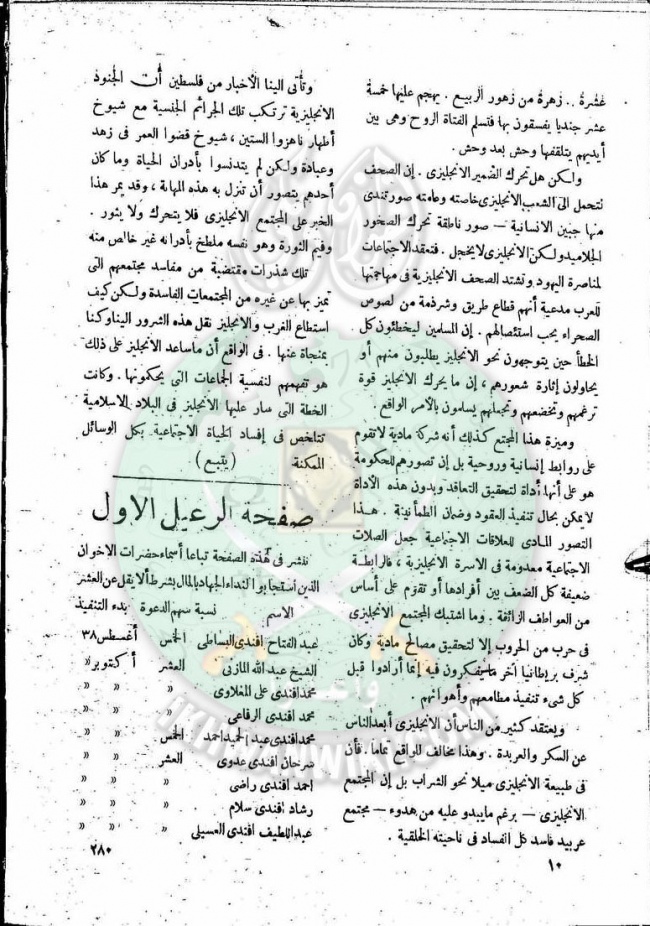 عشرة . . زهرة من زهور الربيع . يهجم عليها خمسة
عشر جنديا يفسقون بها فتسلم الفتاة الروح وهى بين
أيديهم يتلقفها وحش بعد وحش .
ولكن هل تحرك الضمير الانجليزى . إن الصحف
تتحمل الى الشعب الانجليزى خاصته وعامته صور تندى
منها جبين الانسانية — صور ناطقة تحرك الصخور
الجلاميد ولكن الانجليزى لا يخجل . فتعقد الاجتماعات
لمناصرة اليهود وتشتد الصحف الانجليزية فى مهاجمتها
للعرب مدعية أنهم قطاع طريق وشرذمة من لصوص
الصحراء يجب استئصالهم . إن المسلمين ليخطئون كل
الخطأ حين يتوجهون نحو الانجليز يطلبون منهم أو
يحاولون إثارة شعورهم ، إن ما يحرك الانجليز قوة
ترغمهم وتخضعهم وتجعلهم يسلمون بالأمر الواقع .
وميزة هذا المجتمع كذلك أنه شركة مادية لا تقوم
على روابط إنسانية وروحية بل إن تصورهم للحكومة
هو على أنها أداة لتحقيق التعاقد وبدون هذه الأداة
لا يمكن بحال تنفيذ العقود وضمان الطمأنينة . هذا
التصور المادى للعلاقات الاجتماعية جعل الصلات
الاجتماعية معدومة فى الاسرة الانجليزية ، فالرابطة
ضعيفة كل الضعف بين أفرادها أو تقوم على أساس
من العواطف الزائفة . وما اشتبك المجتمع الانجليزى
فى حرب من الحروب إلا لتحقيق مصالح مادية وكان
شرف بريطانيا آخر ما يفكرون فيه إنما أرادوا قبل
كل شىء تنفيذ مطامعهم وأهوائهم .
ويعتقد كثير من الناس أن الانجليزى أبعد الناس
عن السكر والعربدة . وهذا مخالف للواقع تماما . فأن
فى طبيعة الانجليزى ميلا نحو الشراب بل إن المجتمع
الانجليزى — برغم ما يبدو عليه من هدوء — مجتمع
عربيد فاسد كل الفساد فى ناحيته الخلقية .
١٠
وتأتى الينا الأخبار من فلسطين أن الجنود
الانجليزية ترتكب تلك الجرائم الجنسية مع شيوخ
أطهار ناهزوا الستين ، شيوخ قضوا العمر فى زهد
وعبادة ولكن لم يتدنسوا بأدران الحياة وما كان
أحدهم يتصور أن تنزل به هذه المهانة ، وقد يمر هذا
الخبر على المجتمع الانجليزى فلا يتحرك ولا يثور .
وفيم الثورة وهو نفسه ملطخ بأدرانه غير خالص منه
تلك شذرات مقتضبة من مفاسد مجتمعهم التى
تميز بها عن غيره من المجتمعات الفاسدة ولكن كيف
استطاع الغرب والانجليز نقل هذه الشرور الينا وكنا
بمنجاة عنها . فى الواقع أن ما ساعد الانجليز على ذلك
هو تفهمهم لنفسية الجماعات التى يحكمونها . وكانت
الخطة التى سار عليها الانجليز فى البلاد الاسلامية
تتلخص فى إفساد الحياة الاجتماعية بكل الوسائل
الممكنة . (يتبع)
صفحة الرعيل الاول
ننشر فى هذه الصفحة تباعا أسماء حضرات الاخوان
الذين استجابوا لنداء الجهاد بالمال بشرط ألا يقل عن العشر
الاسم نسبة سهم الدعوة بدء التنفيذ
عبد الفتاح افندى البساطى الخمس أغسطس ٣٨
الشيخ عبد الله المازنى العشر أكتوبر «
محمد افندى على المغلاوى « « «
محمد افندى الرفاعى « « «
محمد افندى عبد الحميد احمد الخمس « «
سرحان افندى عدوى العشر « «
احمد افندى راضى « « «
رشاد افندى سلام « « «
عبد اللطيف افندى العسيلى « « «
٢٨٠
IKHWANWIKI.COM